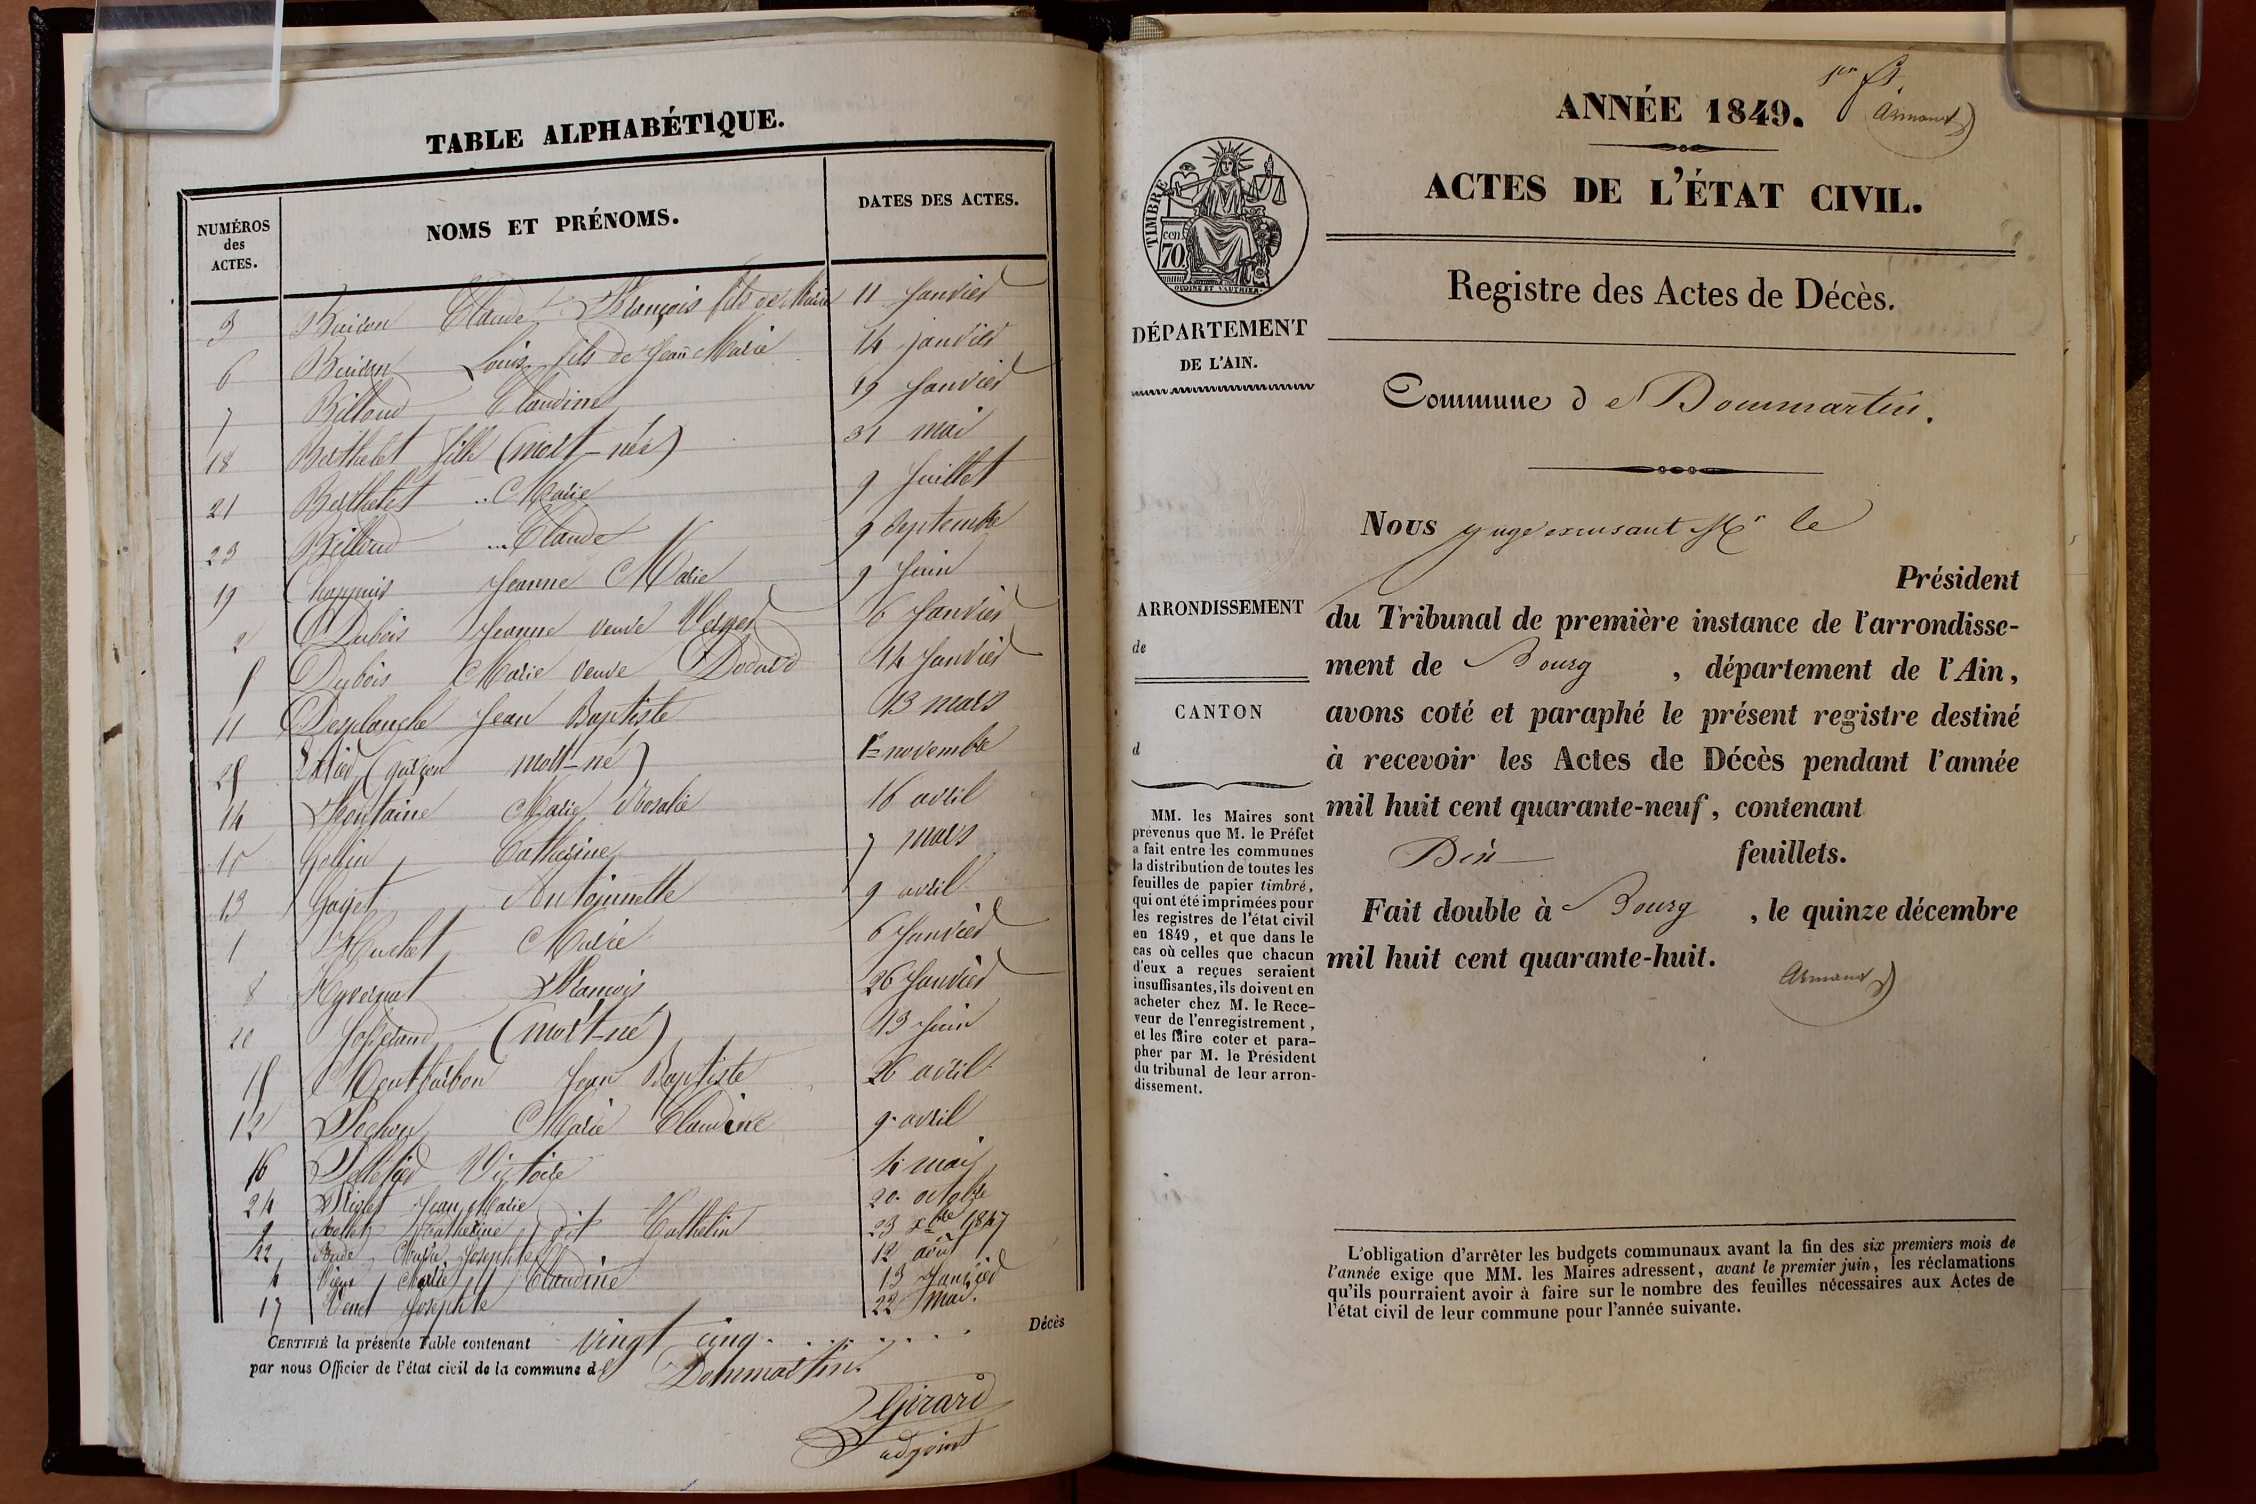 TABLE ALPHABÉTIQUE.
NUMÉROS
des
ACTES.
NOMS ET PRÉNOMS.
DATES DES ACTES.
3 Buiron Claude François fils de Marie 11 Janvier
6 Buiron Louis fils de Jean Marie 14 janvier
7 Billoud Claudine 19 Janvier
18 Berthelet fille (mort-née) 31 mai
21 Berthelet Marie 9 Juillet
23 Billoud Claude 9 Septembre
19 Chappuis Jeanne Marie 9 Juin
2 Dubois Jeanne veuve Verger 6 Janvier
5 Dubois Marie veuve 14 Janvier
11 Desplanche Jean Baptiste 13 mars
25 (garçon mort-né) 1er novembre
14 Fontaine Marie Rosalie 16 avril
10 Catherine 7 mars
13 Goyet Antoinette 9 avril
1 Huchet Marie 6 Janvier
8 Hyvernat François 26 Janvier
20 Josserand (mort-né) 13 Juin
15 Montbarbon Jean Baptiste 26 avril
12 Pochon Marie Claudine 9 avril
16 Victoire 4 mai
24 Jean Marie 20 octobre
9 Catherine dit Cathelin 23 xbre 1847
22 Marie Josephte 12 août
4 Marie Claudine 13 Janvier
17 Venet Josephte 22 mai.
CERTIFIÉ la présente Table contenant vingt cinq Décès
par nous Officier de l'état civil de la commune de Dommartin.
Girard
adjoint
1er
Armand
ANNÉE 1849.
ACTES DE L'ÉTAT CIVIL.
Registre des Actes de Décès.
TIMBRE
cen.
70
DÉPARTEMENT
DE L'AIN.
Commune de Dommartin.
Nous Juge excusant Mr le
Président
du Tribunal de première instance de l'arrondisse-
ment de Bourg, département de l'Ain,
avons coté et paraphé le présent registre destiné
à recevoir les Actes de Décès pendant l'année
mil huit cent quarante-neuf, contenant
Dix feuillets.
Fait double à Bourg, le quinze décembre
mil huit cent quarante-huit.
Armand
ARRONDISSEMENT
de
CANTON
d
MM. les Maires sont
prévenus que M. le Préfet
a fait entre les communes
la distribution de toutes les
feuilles de papier timbré,
qui ont été imprimées pour
les registres de l'état civil
en 1849, et que dans le
cas où celles que chacun
d'eux a reçues seraient
insuffisantes, ils doivent en
acheter chez M. le Rece-
veur de l'enregistrement,
et les faire coter et para-
pher par M. le Président
du tribunal de leur arron-
dissement.
L'obligation d'arrêter les budgets communaux avant la fin des six premiers mois de
l'année exige que MM. les Maires adressent, avant le premier juin, les réclamations
qu'ils pourraient avoir à faire sur le nombre des feuilles nécessaires aux Actes de
l'état civil de leur commune pour l'année suivante.